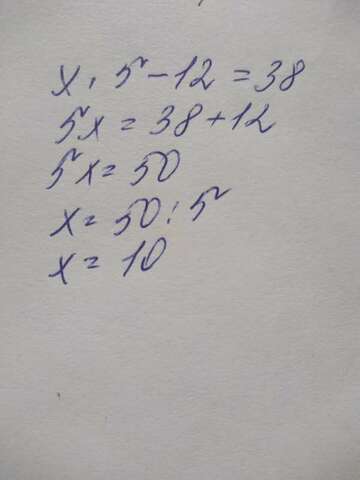 x · 5 - 12 = 38
5x = 38 + 12
5x = 50
x = 50 : 5
x = 10